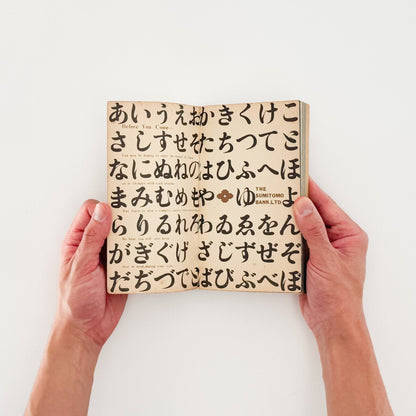 あいうえおかきくけこ
Before You Come
さしすせそたちつてと
なにぬねのはひふへほ
まみむめもや ゆ よ
THE
SUMITOMO
BANK.,LTD
らりるれろわゐゑをん
がぎぐげござじずぜぞ
だぢづでどばびぶべぼ